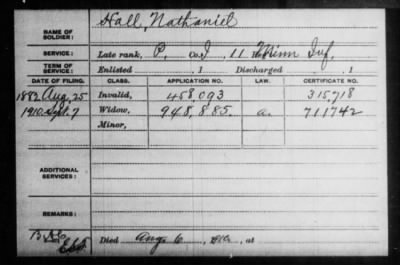 NAME OF SOLDIER: Hall, Nathaniel
SERVICE: Late rank, P, Co. I, 11 Minn Inf.
TERM OF SERVICE: Enlisted , 1 Discharged , 1
DATE OF FILING. CLASS. APPLICATION NO. LAW. CERTIFICATE NO.
1882 Aug. 25 Invalid, 458,093 315,718
1910 Sept. 7 Widow, 948,885. a. 711742
Minor,
ADDITIONAL SERVICES:
REMARKS:
Died Aug 6, at